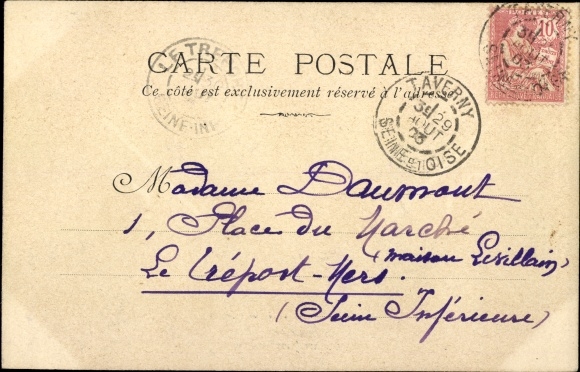 CARTE POSTALE
Ce côté est exclusivement réservé à l'adresse
LE TRE
SEINE-INF
TAVERNY
3E 29
AOUT
03
SEINE-ET-OISE
10
Madame Daumont
1, Place du Marché
(maison Levillain)
Le Tréport-Mers.
(Seine Inférieure)